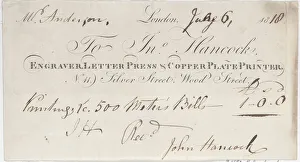 Mr. Anderson, London, July 6, 1810
To Jno. Hancock,
Engraver Letter Press & Copper Plate Printer,
No. Silver Street, Wood Street.
Printing &c. 500 Bills 1-0.0
Recd.
John Hancock